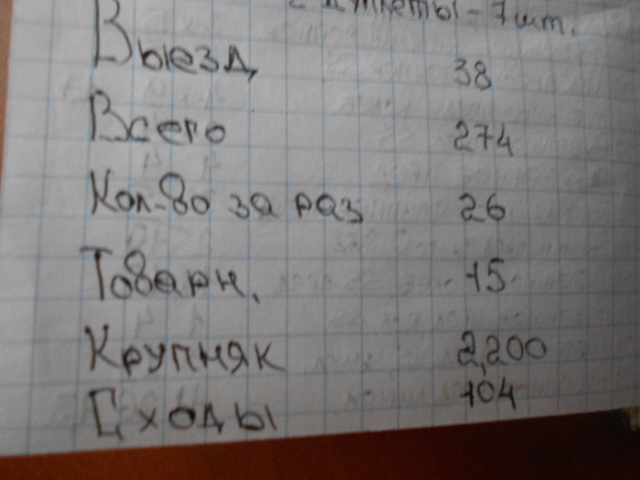 - 7 шт.
Выезд 38
Всего 274
Кол-во за раз 26
Товарн. 15
Крупняк 2,200
Сходы 104